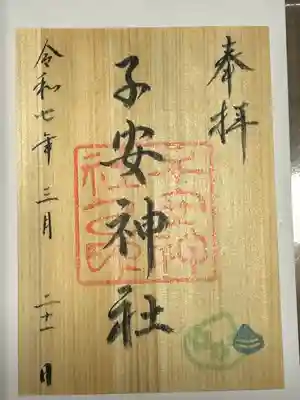 奉拝
子安神社
令和七年三月二十一日